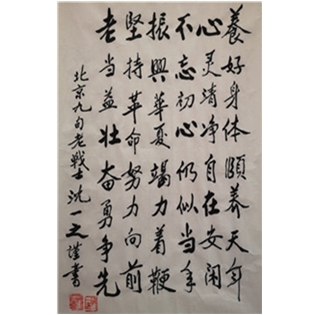 養好身体頤养天年
心灵清净自在安闲
不忘初心仍似当年
振興華夏竭力着鞭
坚持革命努力向前
老当益壮奋勇争先
北京九旬老戰士沈一之谨書